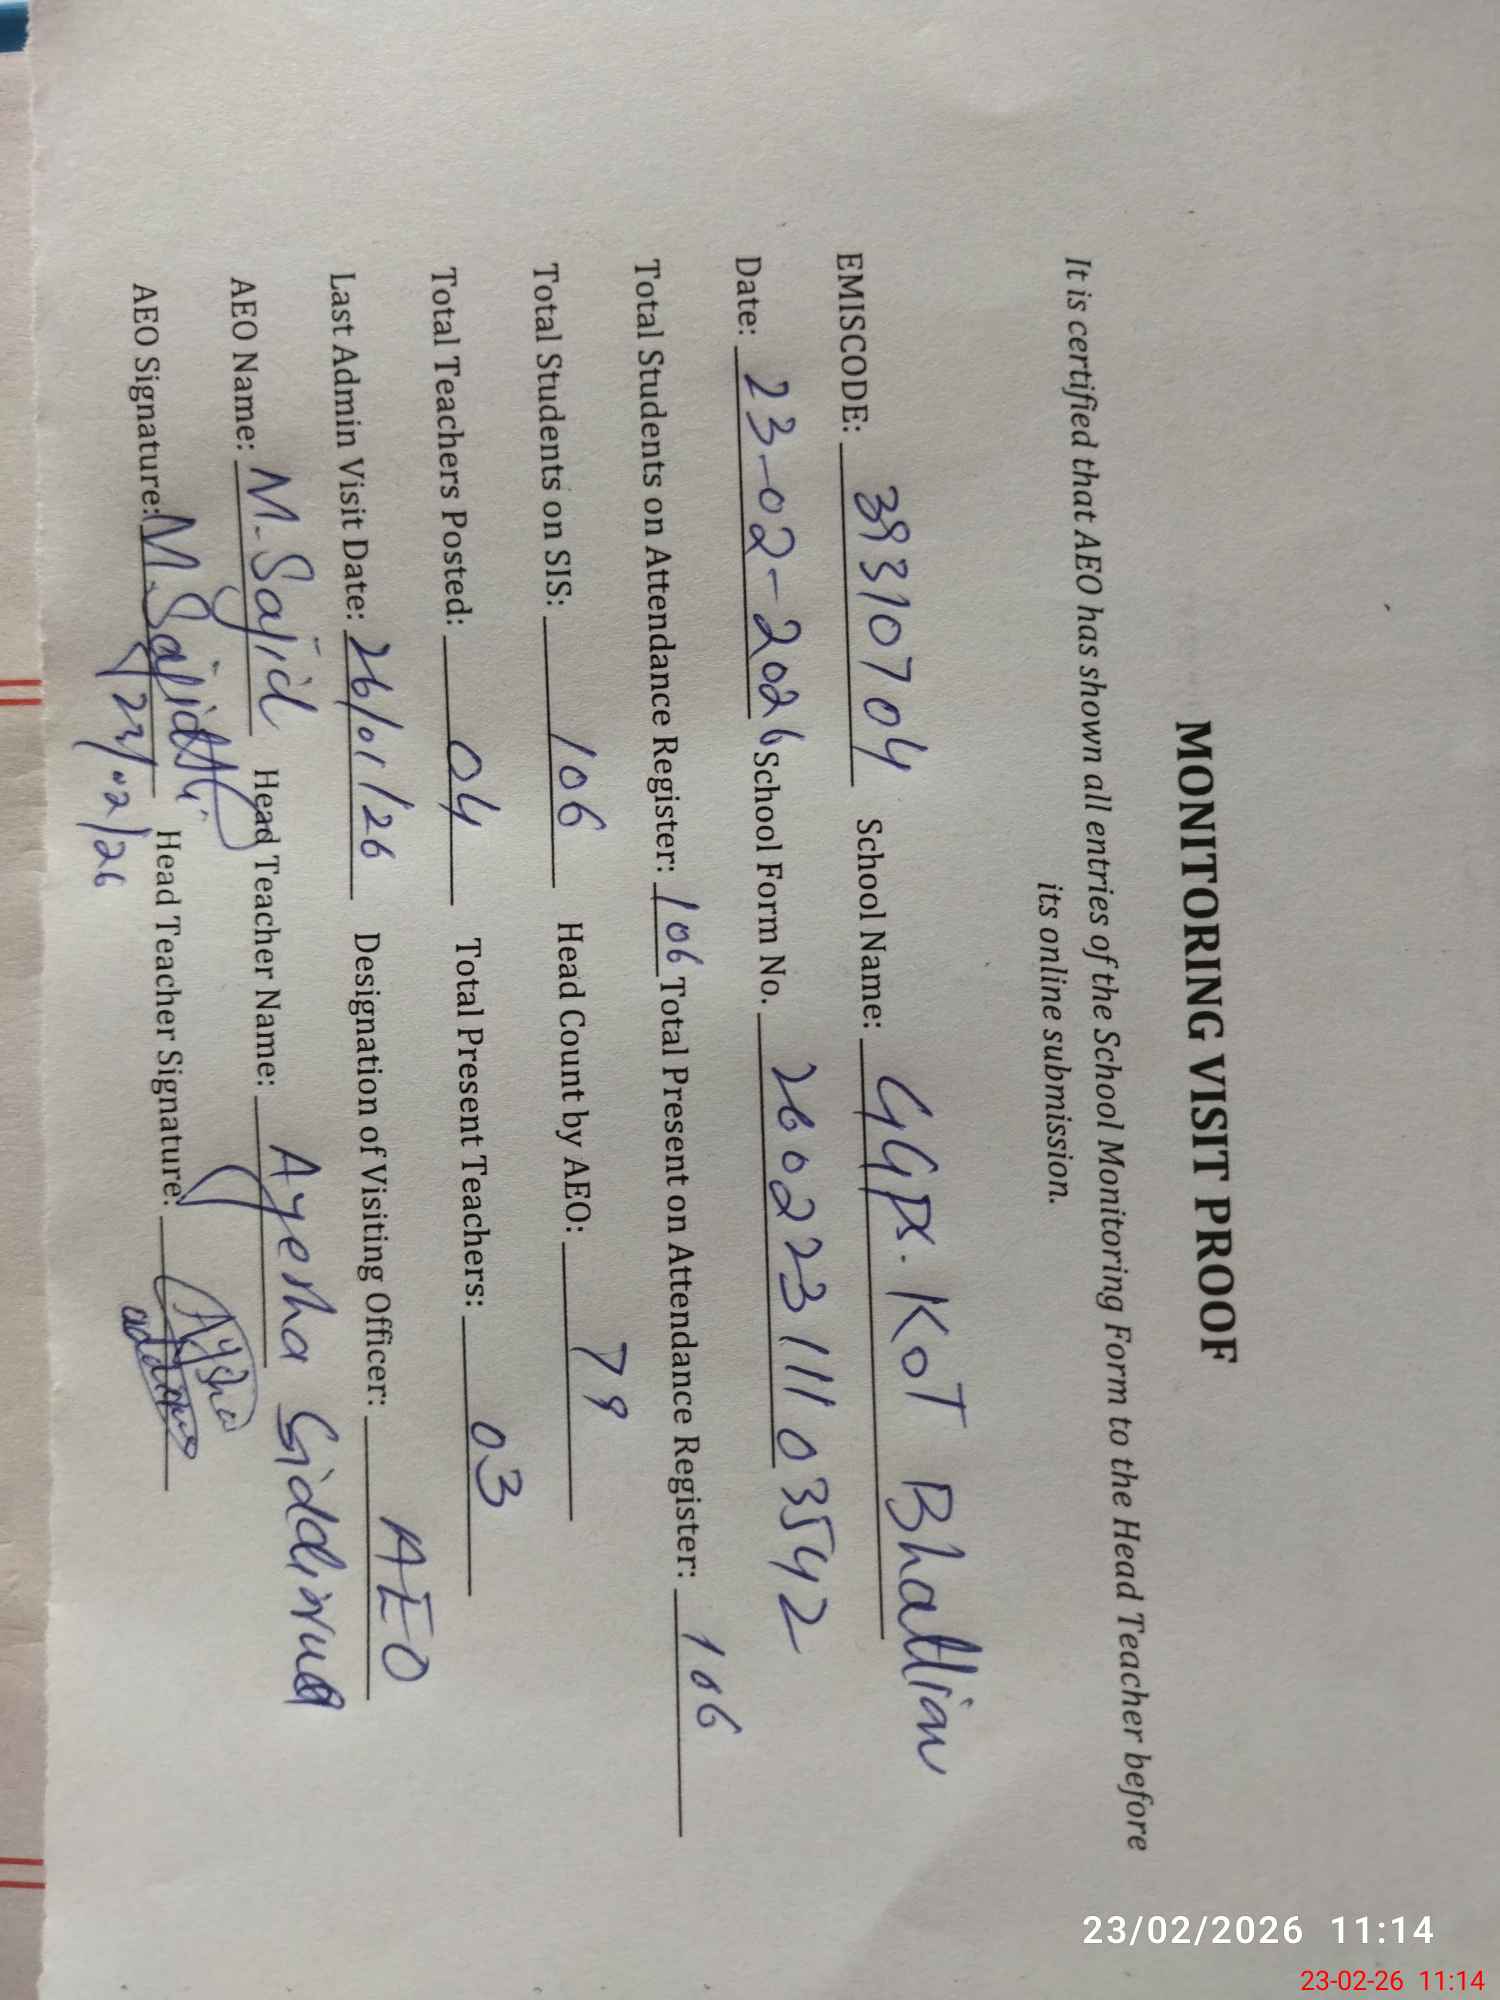 MONITORING VISIT PROOF
It is certified that AEO has shown all entries of the School Monitoring Form to the Head Teacher before
its online submission.
EMISCODE: 39310704 School Name: GGPS. KOT Bhallian
Date: 23-02-2026 School Form No. 26022311103542
Total Students on Attendance Register: 106 Total Present on Attendance Register: 106
Total Students on SIS: 106 Head Count by AEO: 79
Total Teachers Posted: 04 Total Present Teachers: 03
Last Admin Visit Date: 26/01/26 Designation of Visiting Officer: AEO
AEO Name: M. Sajid Head Teacher Name: Ayesha
AEO Signature: M. Sajid Head Teacher Signature:
23/02/26
23/02/2026 11:14
23-02-26 11:14